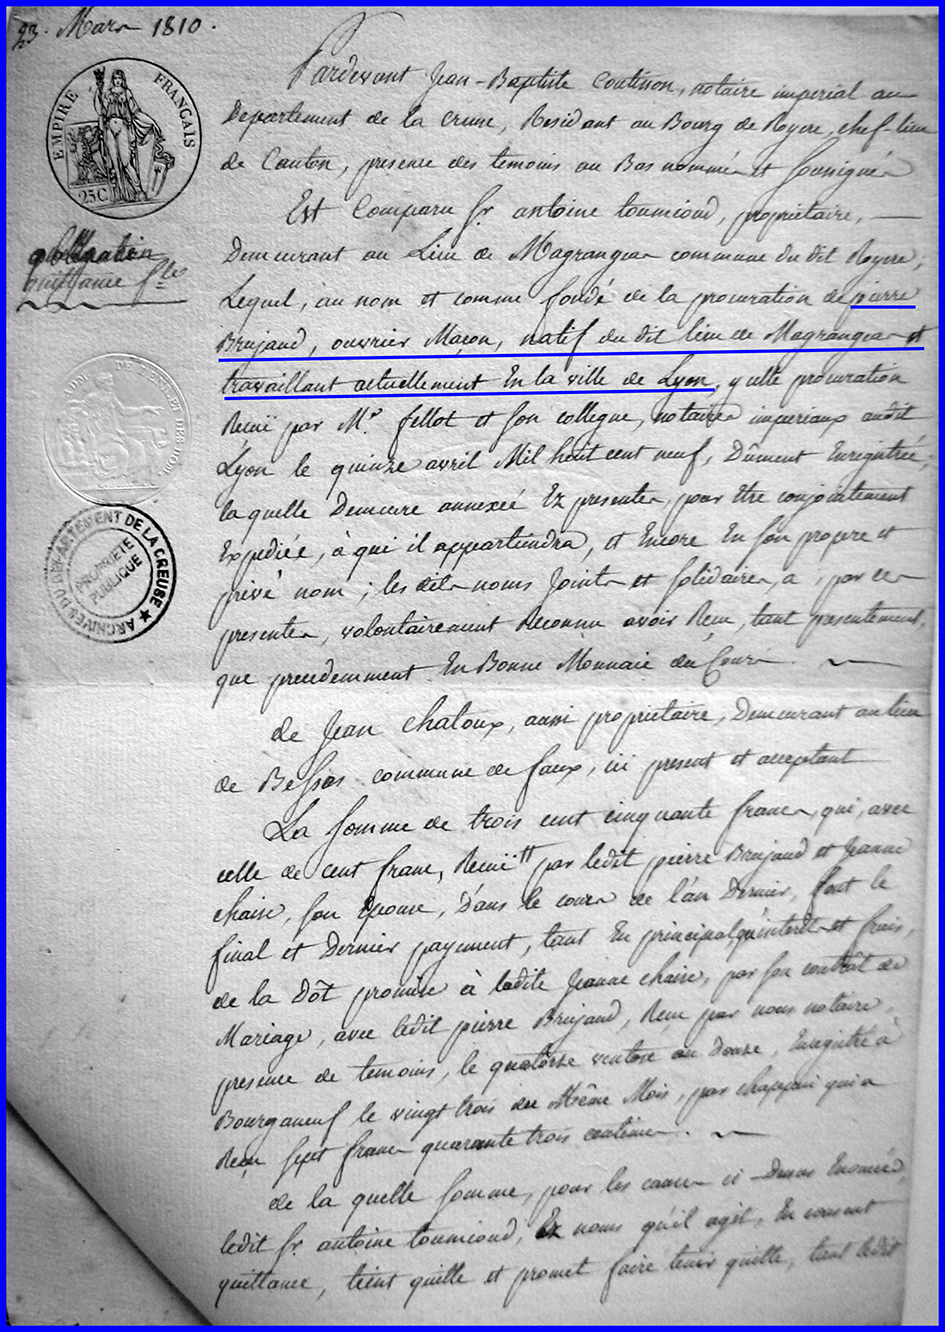 23. Mars 1810.
EMPIRE FRANÇAIS
25C
quittance
ARCHIVES DU DÉPARTEMENT DE LA CREUSE ★
PROPRIÉTÉ
PUBLIQUE
Pardevant Jean-Baptiste Coutisson, notaire imperial au
Departement de la Creuse, Residant au Bourg de Royere, chef-lieu
de Canton, presence des temoins au Bas nommés et soussignés
Est Comparu sr. antoine toumioud, propriétaire, —
Demeurant au Lieu de Magrangeas commune du dit Royere;
Lequel, au nom et comme fondé de la procuration de pierre
Brujaud, ouvrier Maçon, natif du dit lieu de Magrangeas et
travaillant actuellement En la ville de Lyon, y elle procuration
Reçue par Mr. fellot et son collegue, notaires imperiaux audit
Lyon le quinze avril Mil huit cent neuf, Dûment Enregistrée,
laquelle Demeure annexée Ez presentes, pour être conjointement
Expediée, à qui il appartiendra, et Encore En son propre et
privé nom; les dits noms Joints et solidaires, a, par ces
presentes, volontairement Reconnu avoir Reçu, tant presentement,
que precedemment En Bonne Monnaie du Cours. ~
de Jean chatoux, aussi proprietaire, Demeurant au lieu
de Bessas commune de faux, ici present et acceptant
La somme de trois cent cinquante francs, qui, avec
celle de cent francs, par ledit pierre Brujaud et Jeanne
chaise, son Epouse, Dans le cours de l'an Dernier, font le
final et Dernier payement, tant En principal, qu'interêts et frais,
de la Dôt promise à ladite Jeanne chaise, par son contrât de
Mariage, avec ledit pierre Brujaud, Reçu par nous notaire,
presence de temoins, le quatorze ventose an Douze, Enregistré à
Bourganeuf le vingt trois du Même Mois, par chappain qui a
Reçu sept francs quarante trois centimes. ~
de la quelle somme, pour les causes ci-Dessus Enoncées,
ledit sr. antoine toumioud, Ez noms qu'il agit, En consent
quittance, tient quitte et promet faire tenir quitte, tant ledit